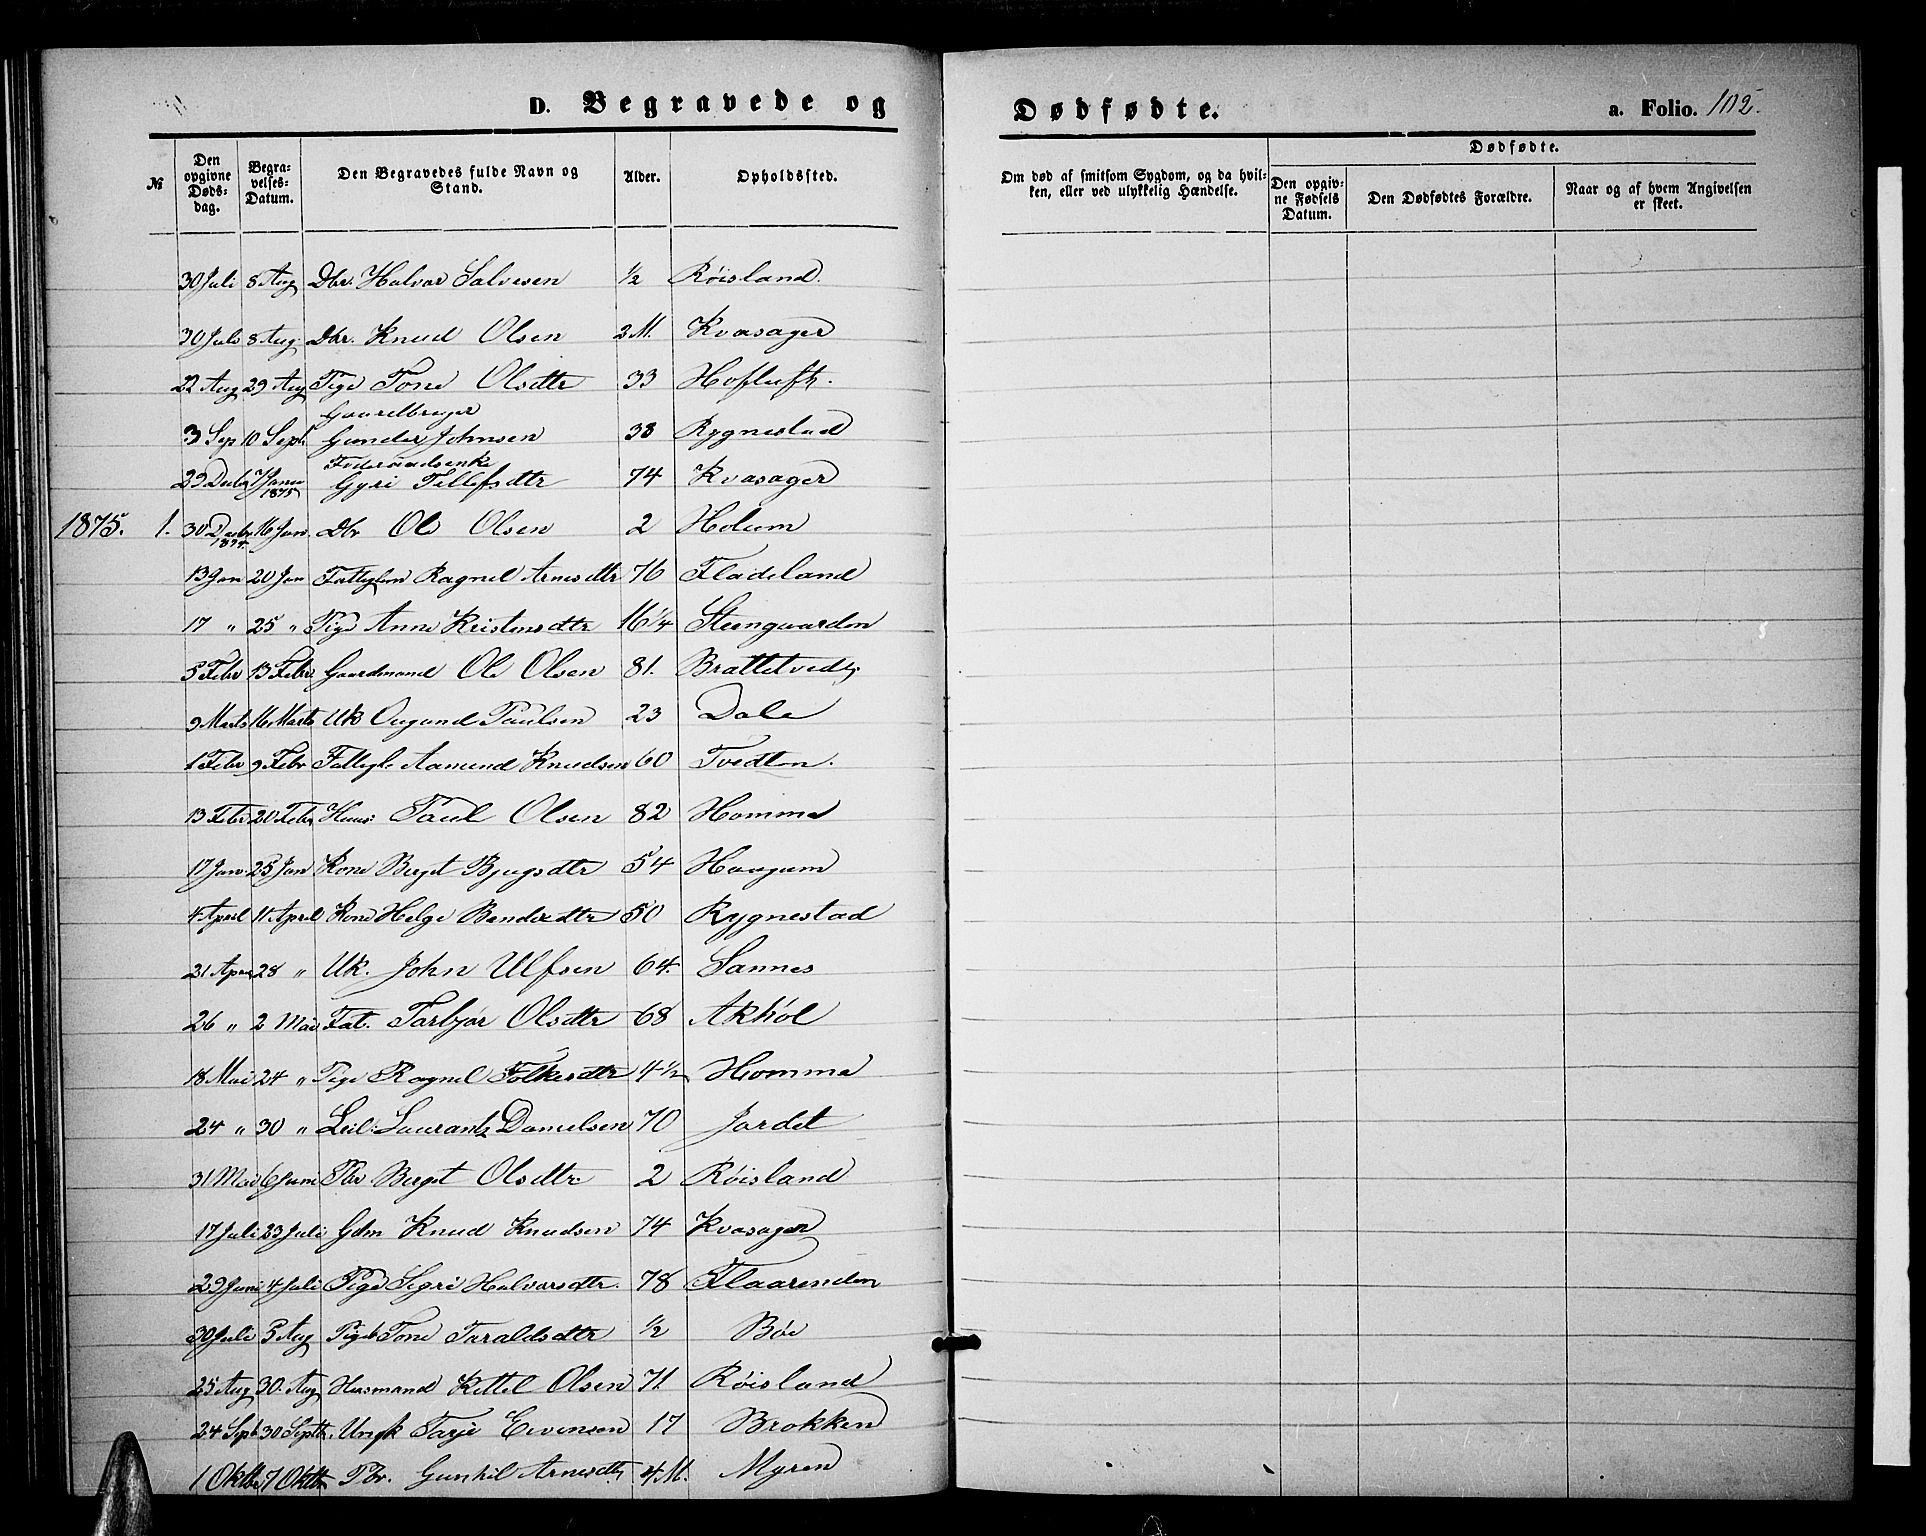 D. Begravede og
Dødfødte.
a. Folio. 102.
№ Den opgivne Døds-dag. Begra-velses-Datum. Den Begravedes fulde Navn og Stand. Alder. Opholdssted.
Om død af smitsom Sygdom, og da hvil-ken, eller ved ulykkelig Hændelse.
Dødfødte.
Den opgiv-ne Fødsels Datum. Den Dødfødtes Forældre. Naar og af hvem Angivelsen er skeet.
30 Juli 8 Aug Dbr. Halvor Salvesen ½ Röisland.
30 Juli 8 Aug. Dbr. Knud Olsen 3 M. Kvasager
22 Aug 29 Aug Pige Tone Olsdtr 33 Hoslufth.
Gaardbruger
3 Sep 10 Sept. Gunder Johnsen 38 Rygnestad
Føderaadsenke
29 Decbr 7 Janu 1875 Gyri Tellefsdtr 74 Kvasager
1875. 1. 30 Decbr 1874. 16 Jan. Dbr Ole Olsen 2 Holum
13 Jan 20 Jan Fattiglem Ragnil Arnesdtr 76 Fladeland
17 " 25 " Pige Anne Kristensdtr 16¼ Steengaarden
5 Febr 13 Febr. Gaardmand Ole Olsen 81. Brattetvedt
9 Marts 16 Marts Uk Ougund Paulsen 23 Dale
1 Febr 9 Febr Fattigl. Aamund Knudsen 60 Tvedten.
13 Febr 20 Febr Huus: Paul Olsen 82 Homme
17 Jan. 25 Jan Kone Bergit Bjugsdtr 54 Haugum
4 April 11 April Kone Helge Bendixdtr 50 Rygnestad
21 Apri 28 " Uk. John Ulfsen 64. Sannes
26 " 2 Mai Fat. Tarbjør Olsdtr 68 Akhöl
18 Mai 24 " Pige Ragnil Folkesdtr 4½ Homme
24 " 30 " Leil: Laurantz Danielsen 70 Jordet
31 Mai 6 Juni Pbr Bergit Olsdtr 2 Röisland
17 Juli 23 Juli Gdm Knud Knudsen 74 Kvasager
29 Juni 4 Juli Pige Sigri Halvorsdtr. 78 Flaarenden
30 Juli 5 Aug Pigeb Tone Taraldsdtr ½ Böe
25 Aug 30. Aug Husmand Kittel Olsen 71. Röisland
24 Sept. 30 Septb. Ungk Tarje Evensen 17 Brokken
1 Oktbr 7 Oktbr Pbr. Gunhil Arnesdtr 4 M. Myren